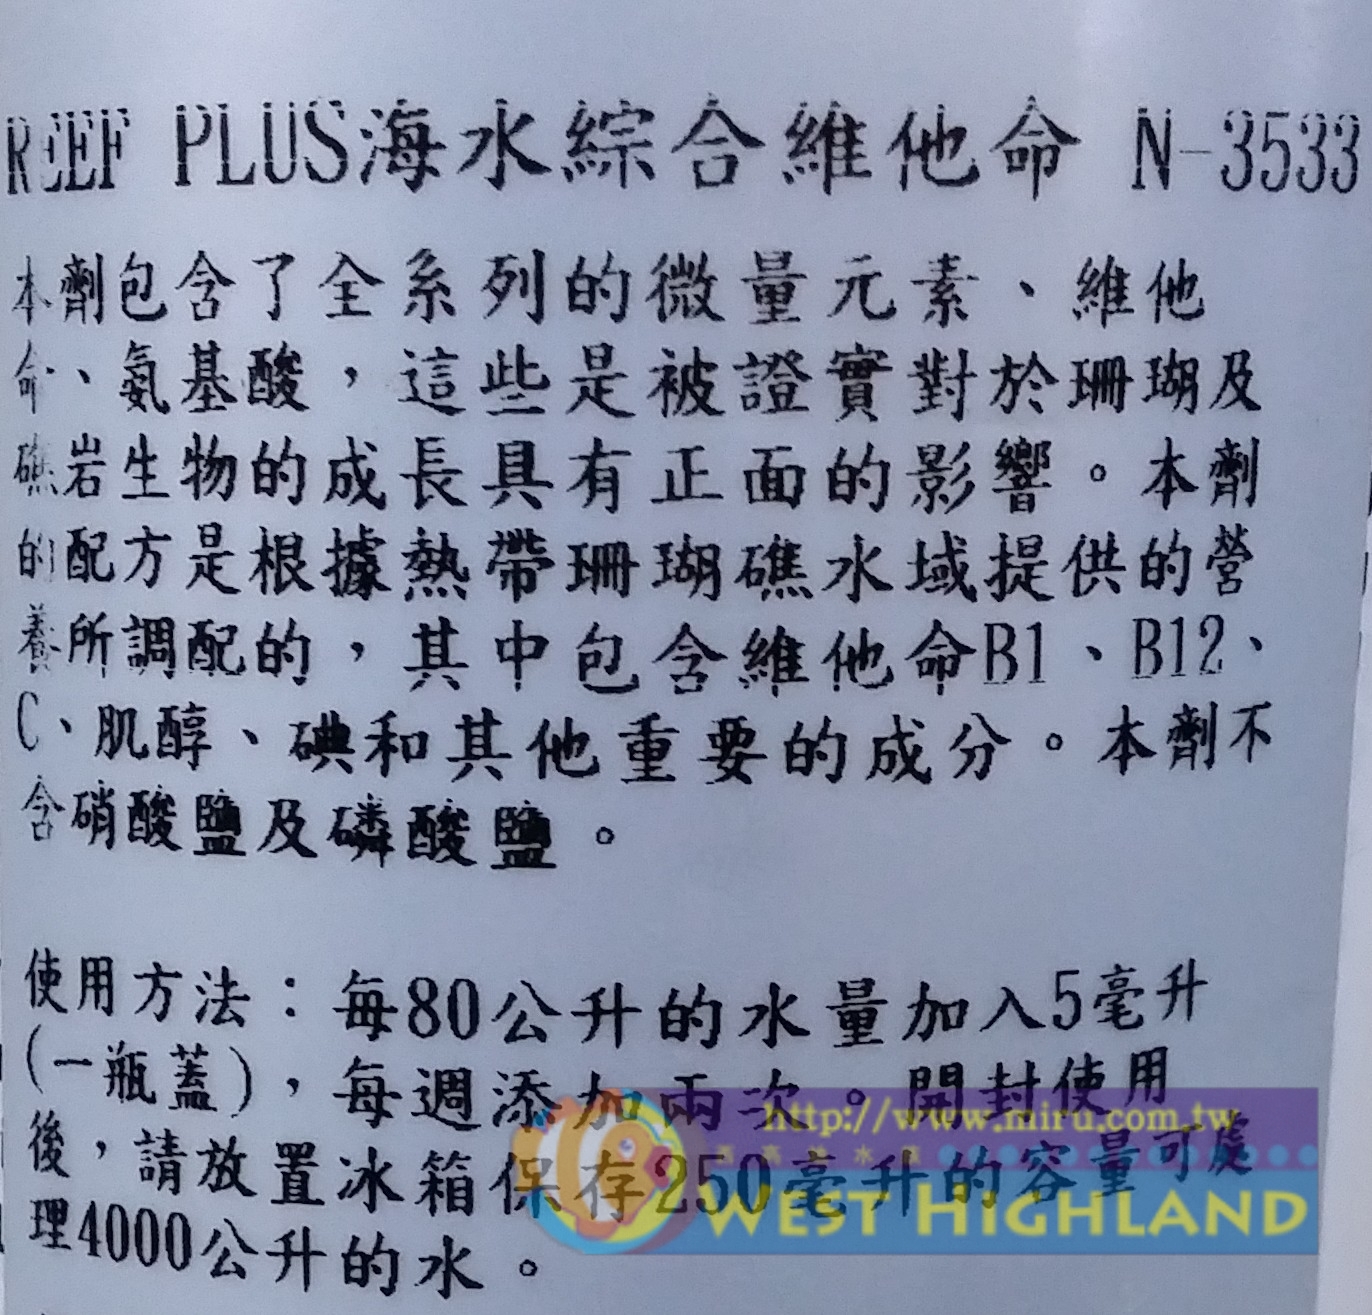 REEF PLUS海水綜合維他命 N-3533
本劑包含了全系列的微量元素、維他
命、氨基酸，這些是被證實對於珊瑚及
礁岩生物的成長具有正面的影響。本劑
的配方是根據熱帶珊瑚礁水域提供的營
養所調配的，其中包含維他命B1、B12、
C、肌醇、碘和其他重要的成分。本劑不
含硝酸鹽及磷酸鹽。
使用方法：每80公升的水量加入5毫升
(一瓶蓋)，每週添加兩次。開封使用
後，請放置冰箱保存250毫升的容量可處
理4000公升的水。
http://www.miru.com.tw
WEST HIGHLAND